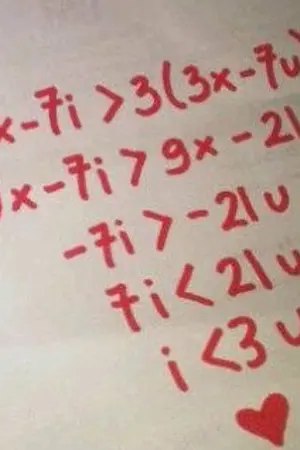 x-7i > 3(3x-7u)
x-7i > 9x-21
-7i > -21u
7i < 21u
i < 3u